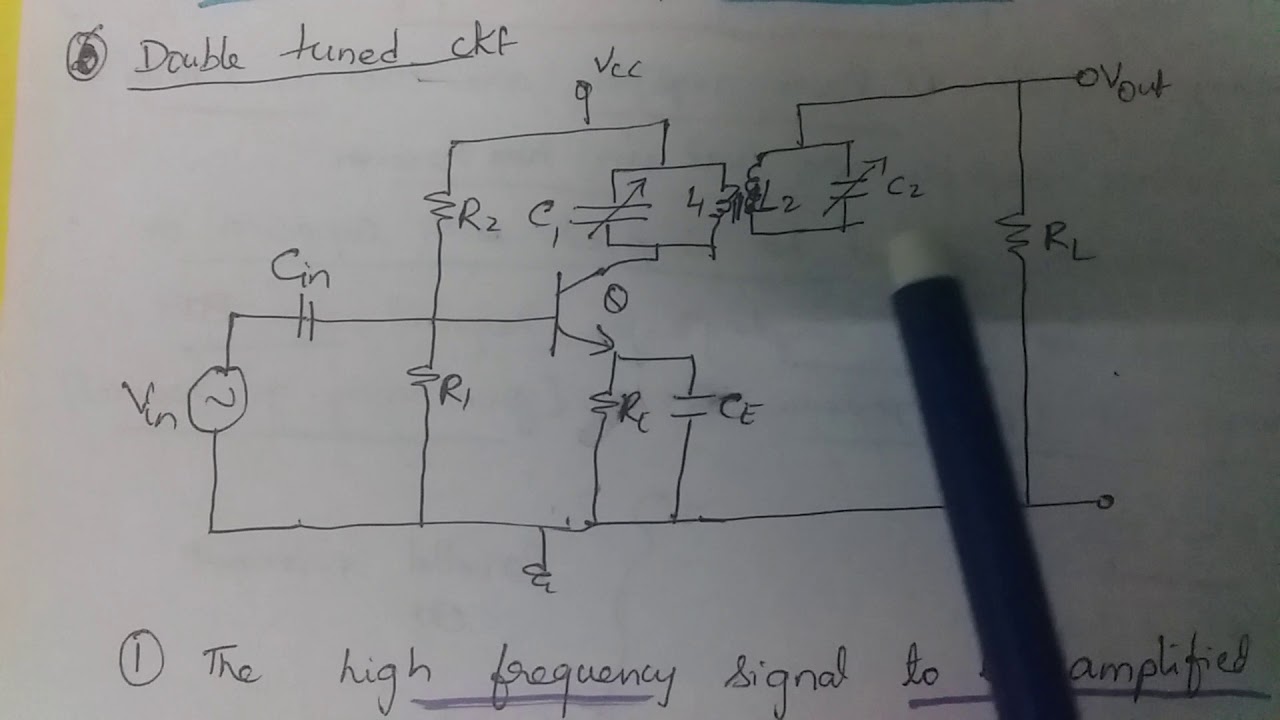 Double tuned ckt
Vcc
Vout
R2
C1
L2
C2
RL
Cin
Q
Vin
R1
RE
CE
① The high frequency signal to amplified